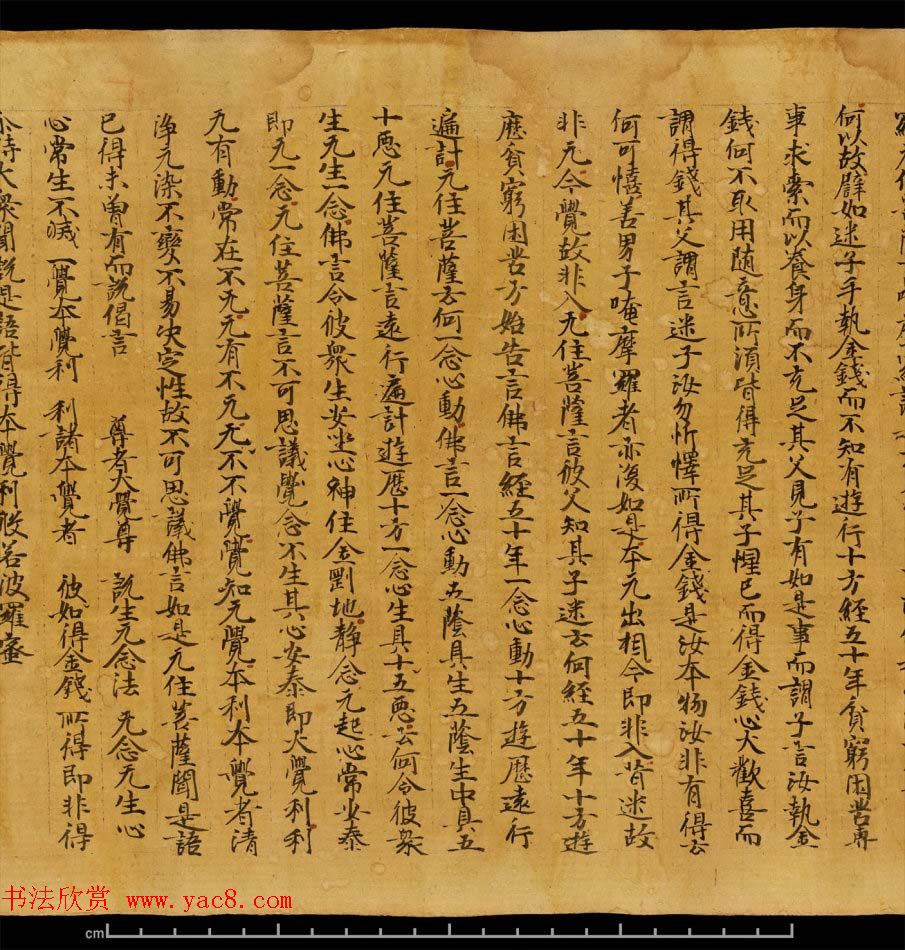 何以故譬如迷子手執金錢而不知有遊行十方經五十年貧窮困苦專
事求索而以養身而不充足其父見子有如是事而謂子言汝執金
錢何不取用随意所湏皆得充足其子惺已而得金錢心大歡喜而
謂得錢其父謂言迷子汝勿忻懌所得金錢是汝本物汝非有得云
何可憘善男子唵摩羅者亦復如是本无出相今即非入昔迷故
非无今覺故非入无住菩薩言彼父知其子迷云何經五十年十方遊
歷貧窮困苦方始告言佛言經五十年一念心動十方遊歷遠行
遍計无住菩薩云何一念心動佛言一念心動五蔭具生五蔭生中具五
十惡无住菩薩言遠行遍計遊歷十方一念心生具十五惡云何令彼衆
生无生一念佛言令彼衆生安坐心神住金剛地静念无起心常安泰
即无一念无住菩薩言不可思議覺念不生其心安泰即大覺利利
无有動常在不无无有不无无不不覺覺知无覺本利本覺者清
浄无染不變不易决定性故不可思議佛言如是无住菩薩聞是語
已得未曾有而說偈言 尊者大覺尊 說生无念法 无念无生心
心常生不滅 一覺本覺利 利諸本覺者 彼如得金錢 所得即非得
大衆聞說是語皆得本覺利般若波羅蜜
书法欣赏 www.yac8.com
cm